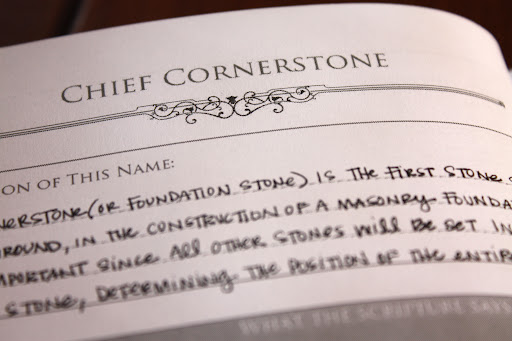 CHIEF CORNERSTONE
ION OF THIS NAME:
NERSTONE (OR FOUNDATION STONE) IS THE FIRST STONE S
ROUND, IN THE CONSTRUCTION OF A MASONRY FOUNDA
MPORTANT SINCE ALL OTHER STONES WILL BE SET IN
STONE, DETERMINING THE POSITION OF THE ENTIR
WHAT THE SCRIPTURE SAYS